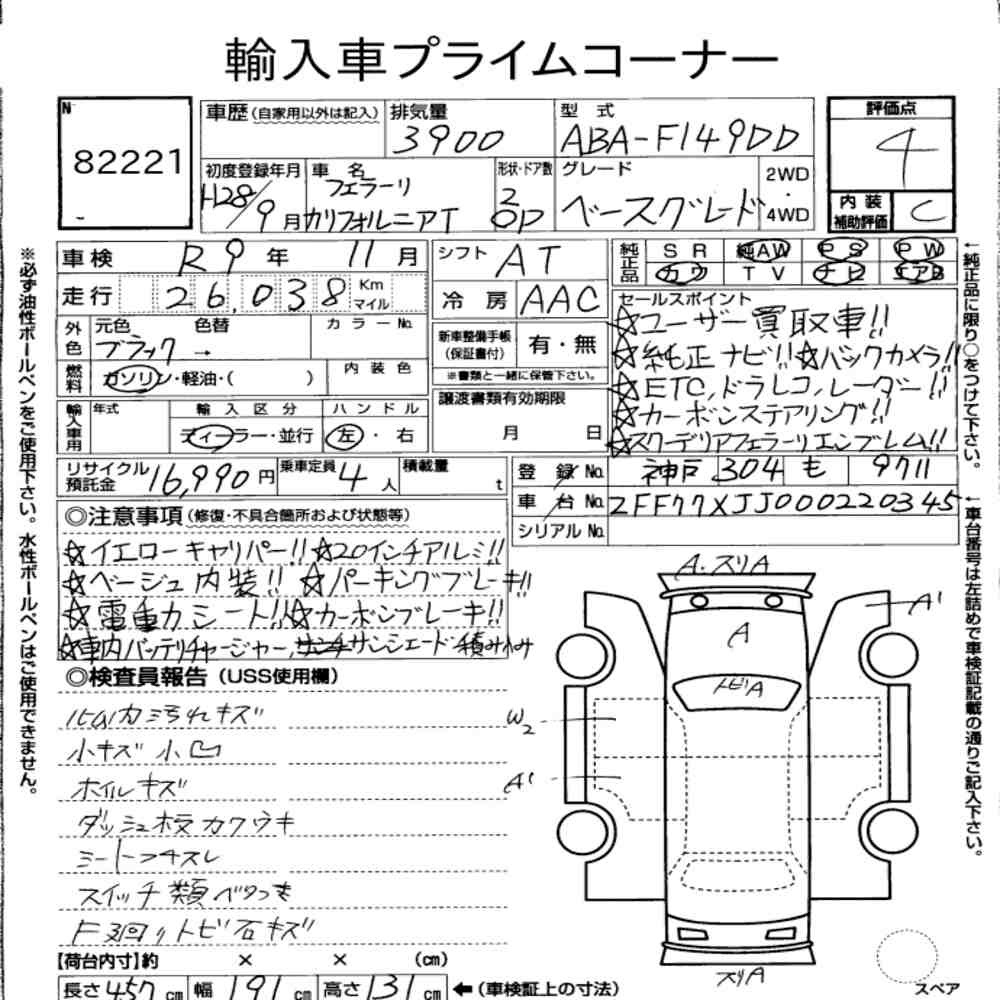 輸入車プライムコーナー
N 82221
車歴 (自家用以外は記入) 排気量 3900 型式 ABA-F149DD 評価点 4
初度登録年月 H28/9月 車名 フェラーリ カリフォルニアT 形状・ドア数 2 OP グレード ベースグレード 2WD・4WD
内装補助評価 C
車検 R9年 11月 シフト AT
純正品 SR 純AW PS PW
カワ TV ナビ エアB
走行 26,038 Km マイル 冷房 AAC
外色 元色 ブラック → 色替 カラーNo.
新車整備手帳 (保証書付) 有・無
※書類と一緒に保管下さい。
燃料 ガソリン・軽油・( ) 内装色
輸入車用 年式 輸入区分 ディーラー・並行 ハンドル 左・右
譲渡書類有効期限 月 日
セールスポイント
☆ユーザー買取車!!
☆純正ナビ!!☆バックカメラ!!
☆ETC,ドラレコ,レーダー!!
☆カーボンステアリング!!
☆スクーデリアフェラーリエンブレム!!
リサイクル預託金 16,990円 乗車定員 4人 積載量 t
登録No. 神戸 304 も 9711
車台No. ZFF77XJJ000220345
シリアルNo.
◎注意事項 (修復・不具合箇所および状態等)
☆イエローキャリパー!! ☆20インチアルミ!!
☆ベージュ内装!! ☆パーキングブレーキ!!
☆電動シート!!☆カーボンブレーキ!!
☆車内バッテリチャージャー, サンシェード積み込み
◎検査員報告 (USS使用欄)
内汚れキズ
小キズ 小凹
ホイルキズ
ダッシュ板カワウキ
シートスレ
スイッチ類ベタつき
F廻りトビ石キズ
A・スリA
A'
A
トビA
W2
A'
スリA
スペア
【荷台内寸】約 × × (cm)
長さ 457 cm 幅 191 cm 高さ 131 cm ←(車検証上の寸法)
※必ず油性ボールペンをご使用下さい。水性ボールペンはご使用できません。
←純正品に限り○をつけて下さい。
←車台番号は左詰めで車検証記載の通りご記入下さい。